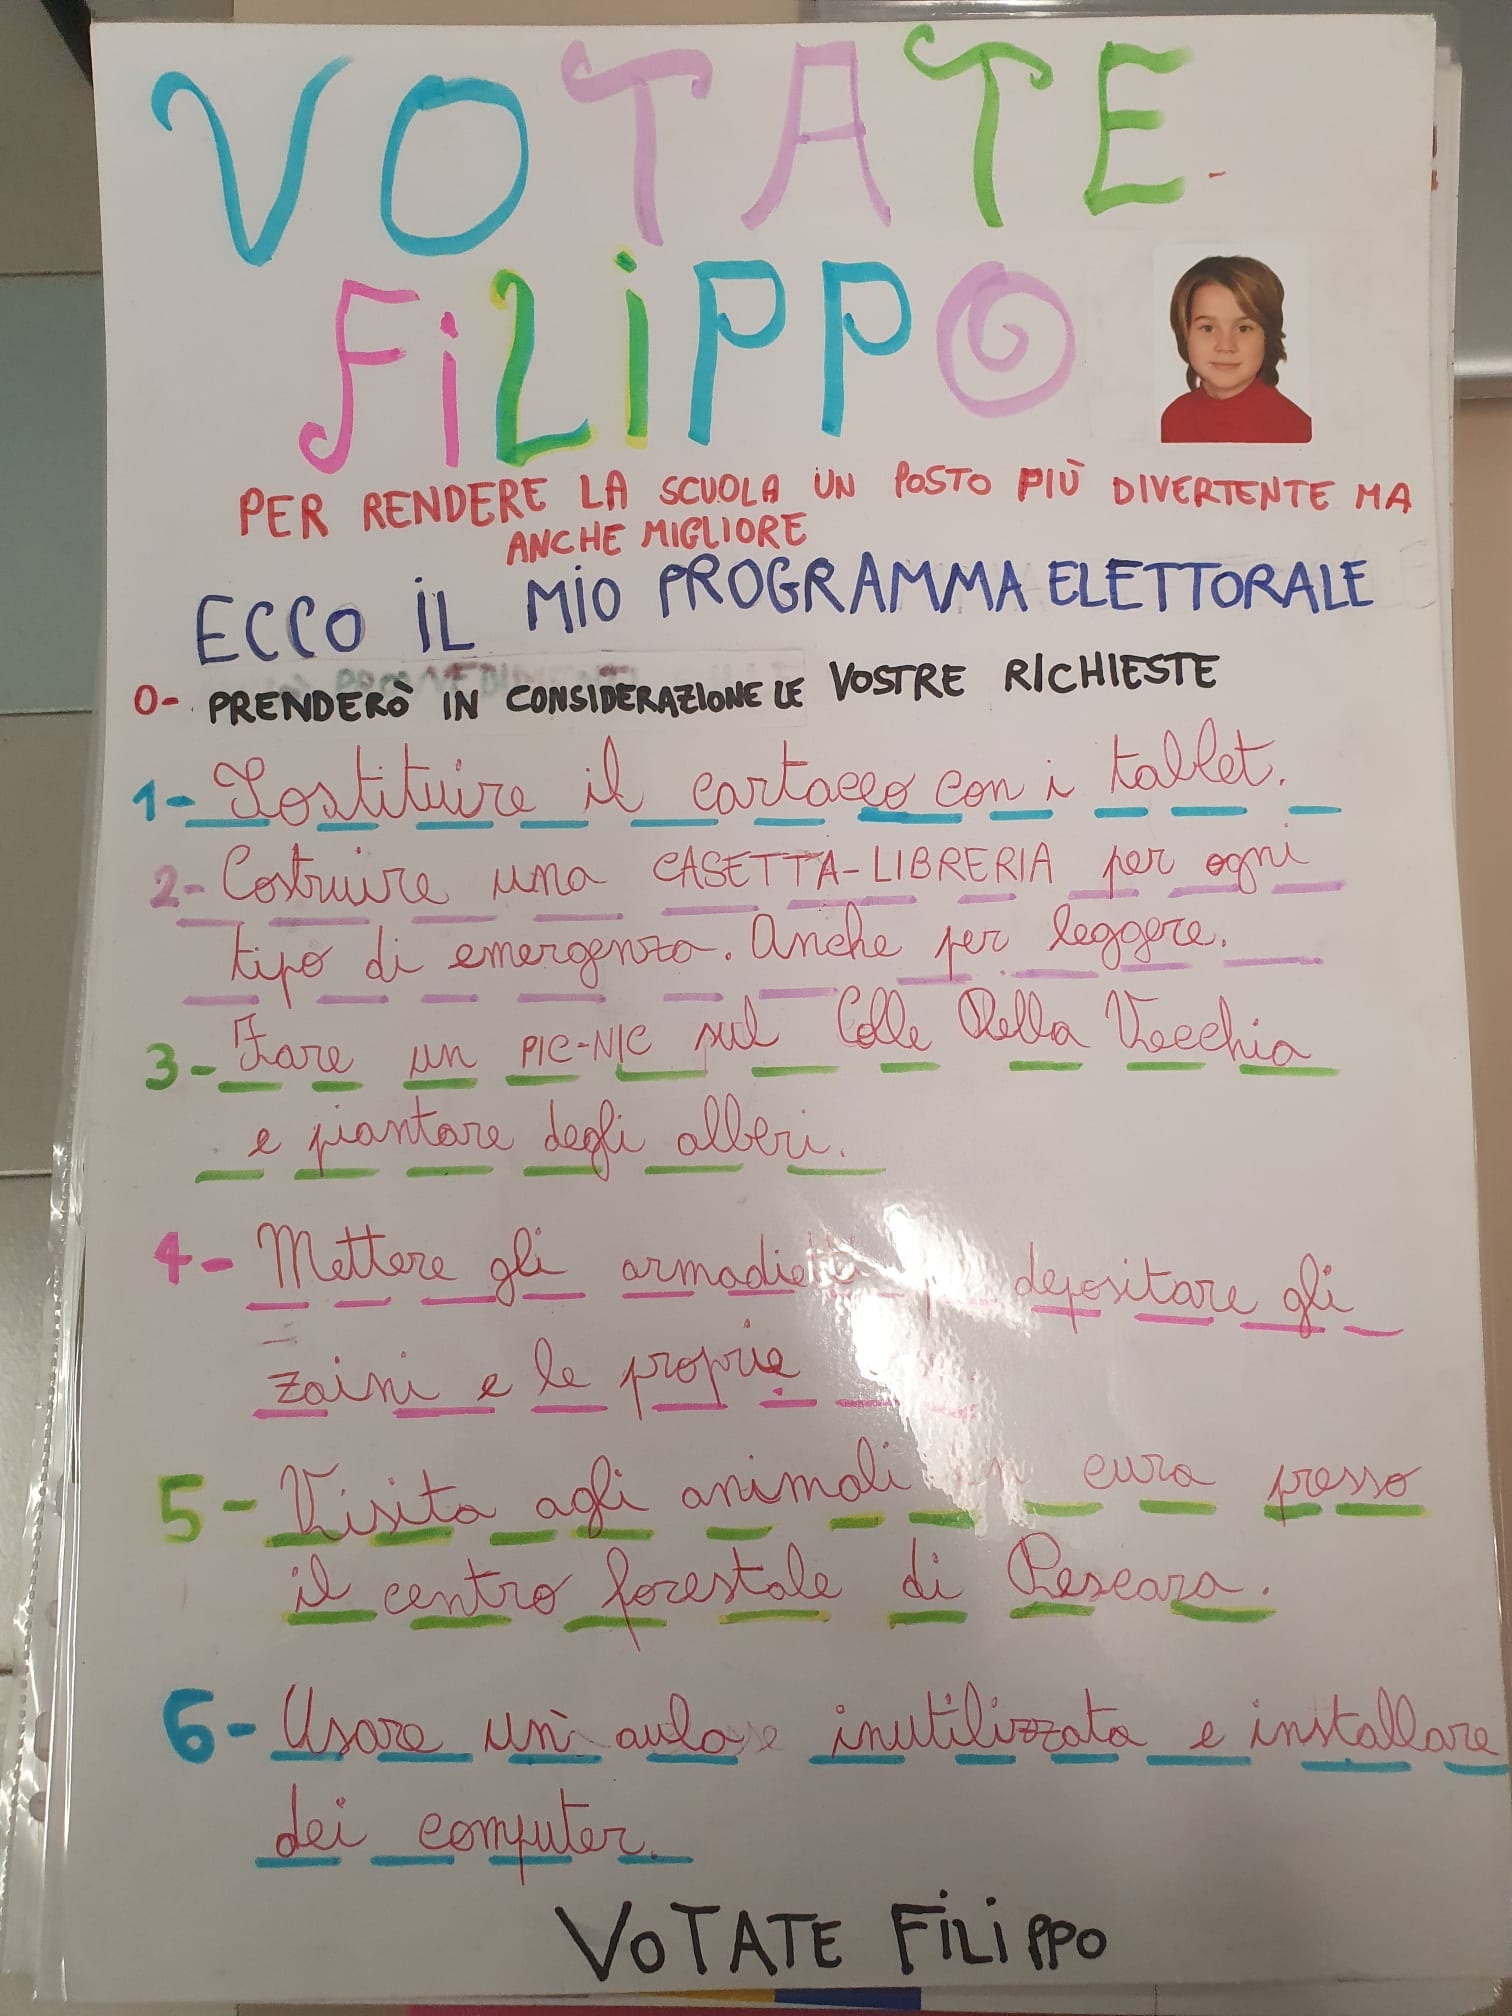 VOTATE
FiLiPPO
PER RENDERE LA SCUOLA UN POSTO PIÙ DIVERTENTE MA
ANCHE MIGLIORE
ECCO IL MIO PROGRAMMA ELETTORALE
0- PRENDERÒ IN CONSIDERAZIONE LE VOSTRE RICHIESTE
1- Sostituire il cartaceo con i tablet.
2- Costruire una CASETTA-LIBRERIA per ogni
tipo di emergenza. Anche per leggere.
3- Fare un PIC-NIC sul Colle Della Vecchia
e piantare degli alberi.
4- Mettere gli armadietti depositare gli
zaini e le proprie
5- Visita agli animali in cura presso
il centro forestale di Pescara.
6- Usare un' aula inutilizzata e installare
dei computer.
VOTATE FILIPPO